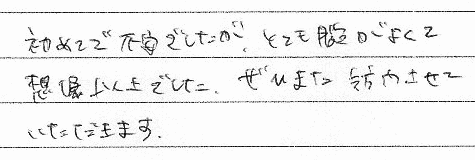 初めてで不安でしたが、とても腕がよくて
想像以上でした。ぜひまた予約させて
いただきます。